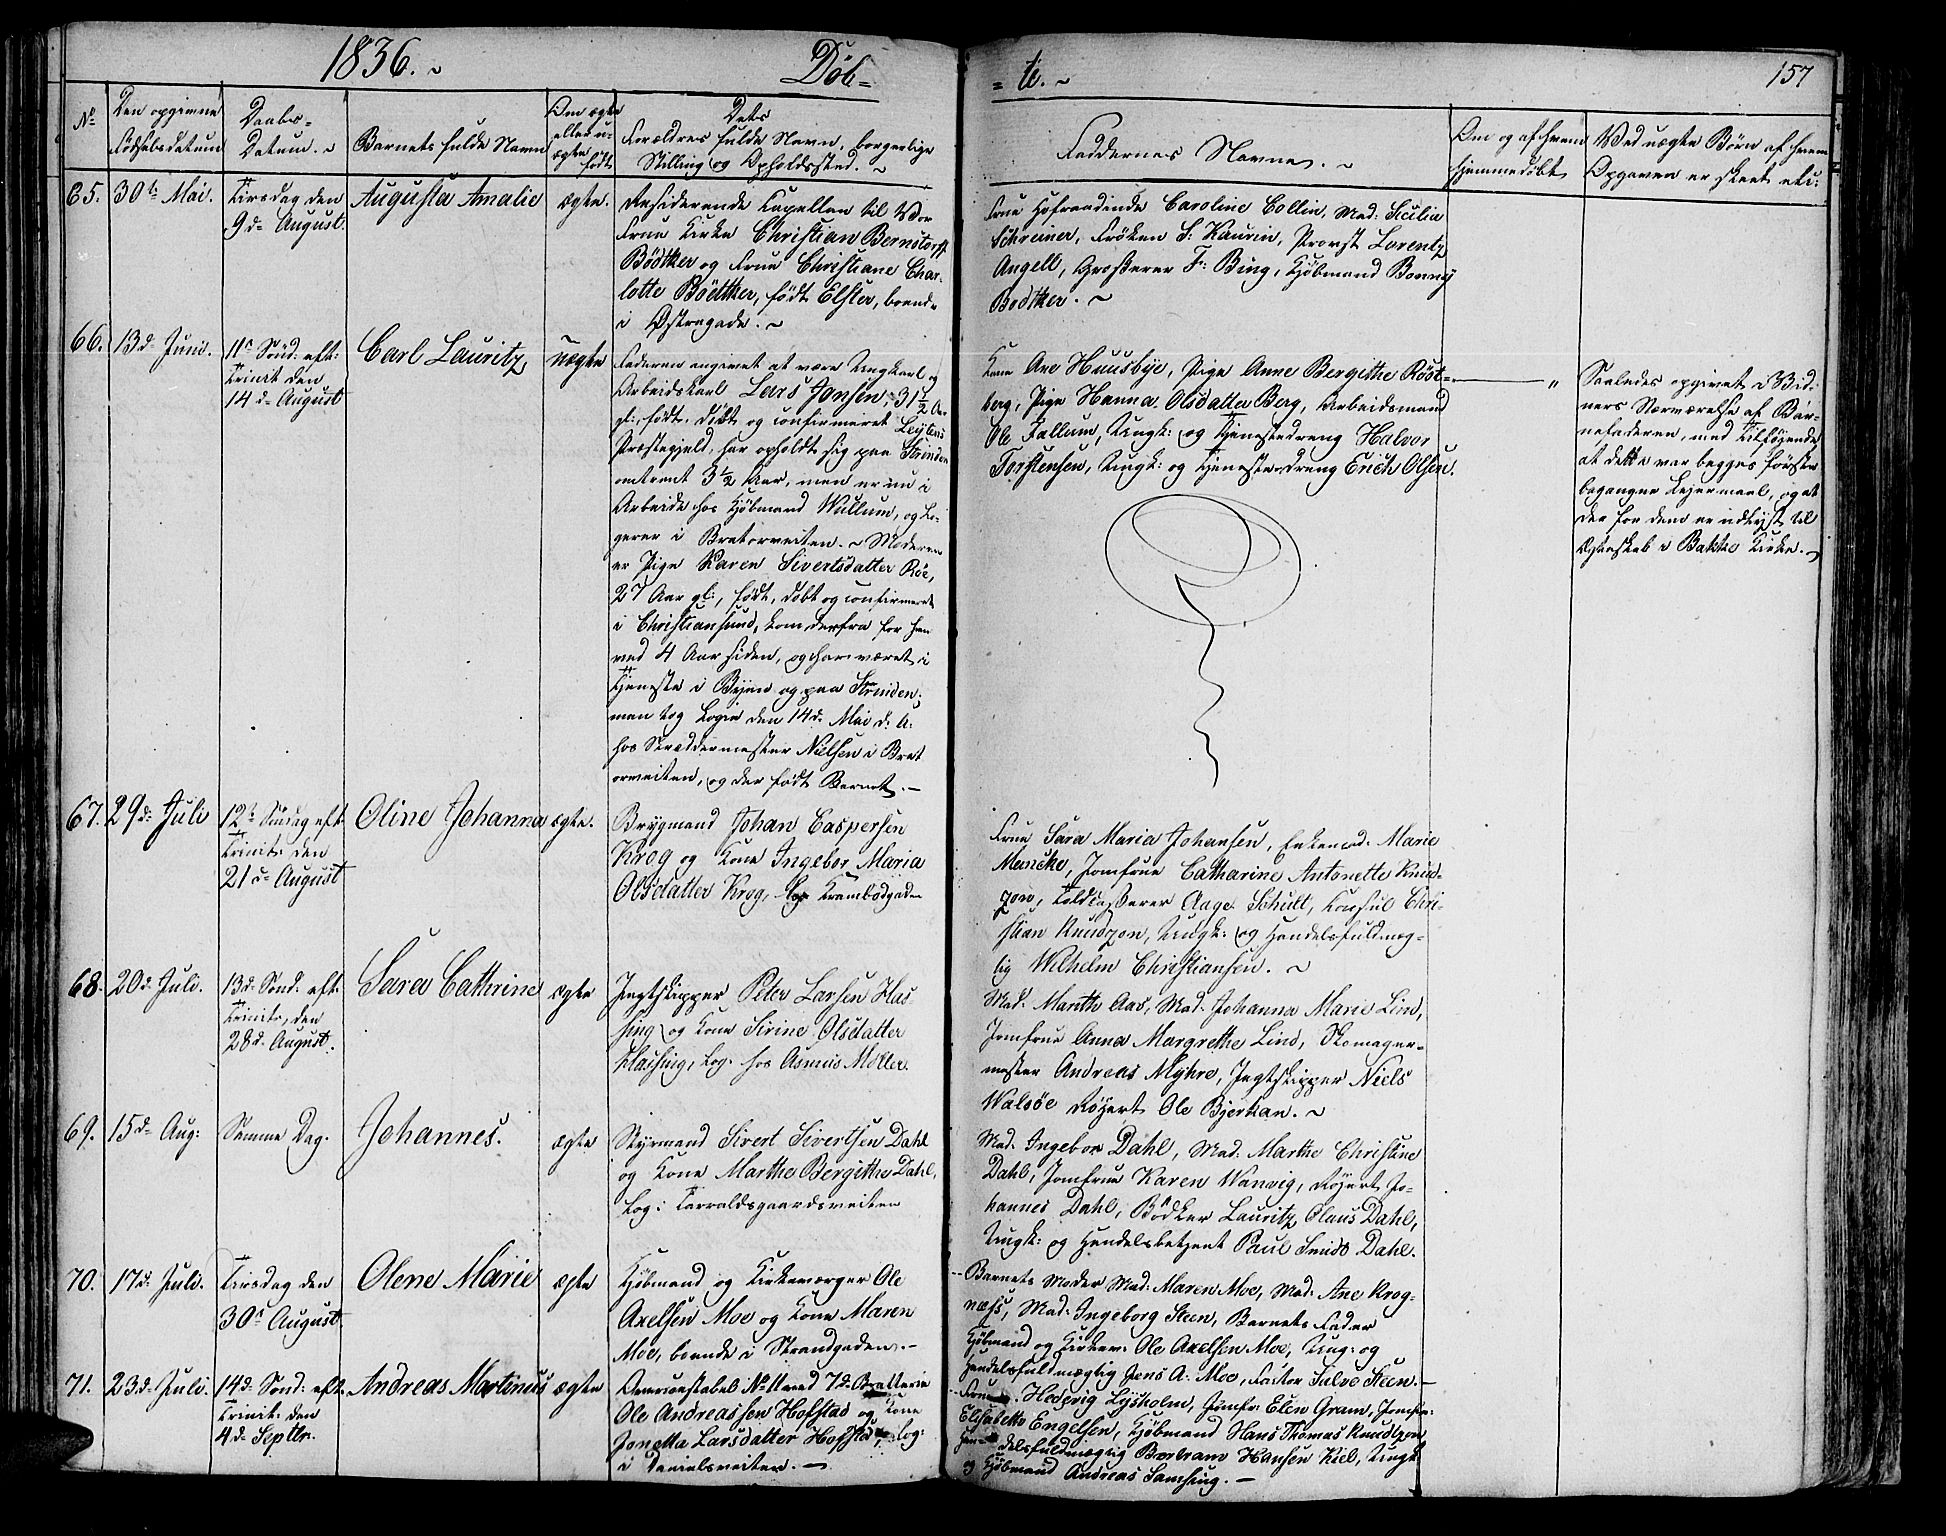 1836. ~ Döb-
= te. ~ 157
No
Den opgivne
Fødselsdatum
Daabs-
Datum. ~
Barnets fulde Navn
Om ægte
eller u-
ægte
født
Dets
Forældres fulde Navn, borgerlige
Stilling og Opholdssted. ~
Faddernes Navne. ~
Om og af hvem
hjemmedøbt
Ved uægte Børn af hvem
Opgaven er skeet etc:
65. 30te Mai. Tirsdag den
9d August.
Augusta Amalie ægte.
Residerende Capellan til Vor
Frue Kirke Christian Bernstorff
Bödtker og Frue Christiane Char-
lotte Böettker, født Elster, boende
i Østregade. ~
Frue Hofraadinde Caroline Collin, Mad: Sicilia
Schreiner, Frøken S: Kaurin, Provst Lorentz
Angell, Grosserer F: Bing, Kjøbmand Bonney
Bodtker. ~
66. 13d Juni. 11e Sönd: eft:
Trinit den
14d August
Carl Lauritz uægte
Faderen angivet at være Ungkarl og
Arbeidskarl Lars Jonsen, 31½ Aar
gl:, født, døbt og confirmeret
Præstegjeld, har opholdt sig paa Strinden
omtrent 3½ Aar, men er nu i
Arbeide hos Kjøbmand Wullum, og lo-
gerer i Bratorveiten. ~ Moderen
er Pige Karen Sivertsdatter Röe,
27 Aar gl:, født, døbt og confirmeret
i Christiansund, kom derfra for hen
ved 4 Aar siden, og har været i
Tjeneste i Byen og paa Strinden,
men tog Logie den 14d Mai d: A:
hos Skræddermester Nielsen i Brat
orveiten, og der født Barnet. ~
Kone Ane Huusbye, Pige Anne Bergithe Röst-
berg, Pige Hanna Olsdatter Berg, Arbeidsmand
Ole Fallum, Ungk: og Tjenestedreng Halvor
Torstensen, Ungk: og Tjenestedreng Erich Olsen.
— "
Saaledes opgivet i Vid-
ners Nærværelse af Bar-
nefaderen, med tilføjende
at dette var begges første
begangne Leiermaal, og at
der for dem er udlyst til
Egteskab i Bakke Kirke. ~
67. 29d Juli 12te Søndag eft
Trinit: den
21d August
Oline Johanna ægte.
Brygmand Johan Caspersen
Krog og Kone Ingebor Maria
Olsdatter Krog, Log Krambodgaden
Frue Sara Maria Johansen, Enkemad: Marie
Mencke, Jomfrue Catharine Antonette Knud-
zon, Toldcasserer Aage Schult, Consul Chri-
stian Knudzon, Ungk: og Handelsfuldmæg-
tig Wilhelm Christiansen. ~
68. 20d Juli. 13d Sönd: eft:
Trinit:, den
28d August.
Sara Cathrine ægte
Jægtskipper Peter Larsen Has-
sing og Kone Sirine Olsdatter
Hassing, Log. hos Asmus Möller.
Mad: Marith Aas, Mad: Johanna Marie Lind,
Jomfrue Anna Margrethe Lind, Skomager-
mester Andreas Myhre, Jægtskipper Niels
Walsöe Röyert Ole Bjerkan. ~
69. 15d Aug: Samme Dag. Johannes. ægte
Styrmand Sivert Sivertsen Dahl
og Kone Marthe Bergitthe Dahl,
Log: Tarraldsgaardsveiten
Mad. Ingebor Dahl, Mad: Marthe Christine
Dahl, Jomfrue Karen Wanvig, Röyert Jo-
hannes Dahl, Bödker Lauritz Claus Dahl,
Ungk: og Handelsbetjent Paul Smidt Dahl.
70. 17d Juli. Tirsdag den
30te August
Olene Marie ægte
Kjøbmand og Kirkeværger Ole
Axelsen Moe og Kone Maren
Moe, boende i Strandgaden. ~
Barnets Moder Mad: Maren Moe, Mad: Ane Krog-
næss, Mad: Ingeborg Steen, Barnets Fader
Kjøbmand og Kirkev: Ole Axelsen Moe, Ung: og
Handelsfuldmægtig Jens A: Moe, Factor Salve Steen. —
71. 23d Juli. 14d Sönd: eft
Trinit: den
4d Septbr.
Andreas Martinus ægte
No 11 ved 7d Batterie
Ole Andreassen Hofstad og Kone
Jonetta Larsdatter Hofstad, Log:
i Danielsveiten. —
Frue Hedevig Lysholm, Jomfr: Elen Gram, Jomfr:
Elisabeth Engelsen, Kjøbmand Hans Thomas Knudtzon
Handelsfuldmægtig Bertram Hansen Kiel, Ungk
og Kjøbmand Andreas Samsing. —